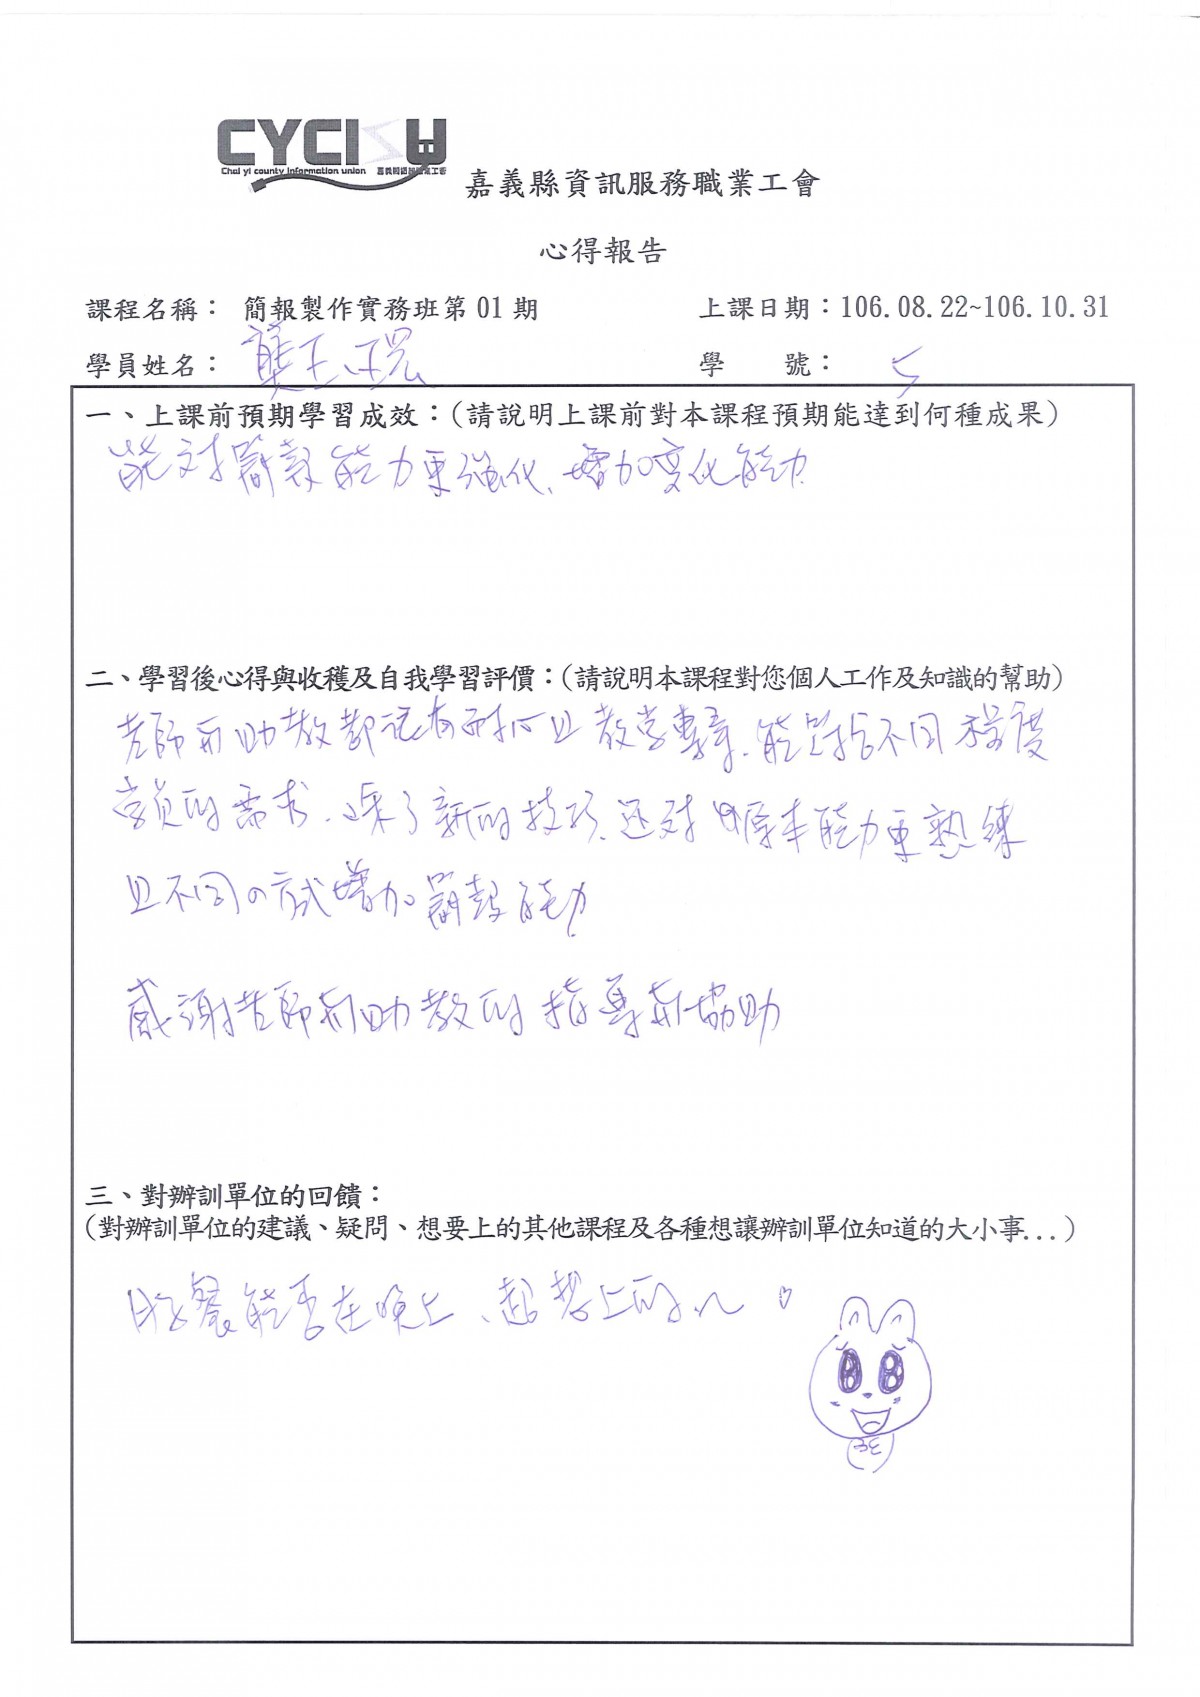 CYCISU
Chai yi county information union 嘉義縣資訊服務職業工會
嘉義縣資訊服務職業工會
心得報告
課程名稱： 簡報製作實務班第 01 期 上課日期：106.08.22~106.10.31
學員姓名： 龔玉 學 號： 5
一、上課前預期學習成效：（請說明上課前對本課程預期能達到何種成果）
能对簡報能力更強化、增加变化能力
二、學習後心得與收穫及自我學習評價：（請說明本課程對您個人工作及知識的幫助）
老師和助教都很有耐心且教學專章、能配合不同程度
學員的需求、除了新的技巧、还对原本能力更熟練
且不同の方式增加簡報能力
感謝老師和助教的指導和協助
三、對辦訓單位的回饋：
（對辦訓單位的建議、疑問、想要上的其他課程及各種想讓辦訓單位知道的大小事...）
能否在晚上、超想上的